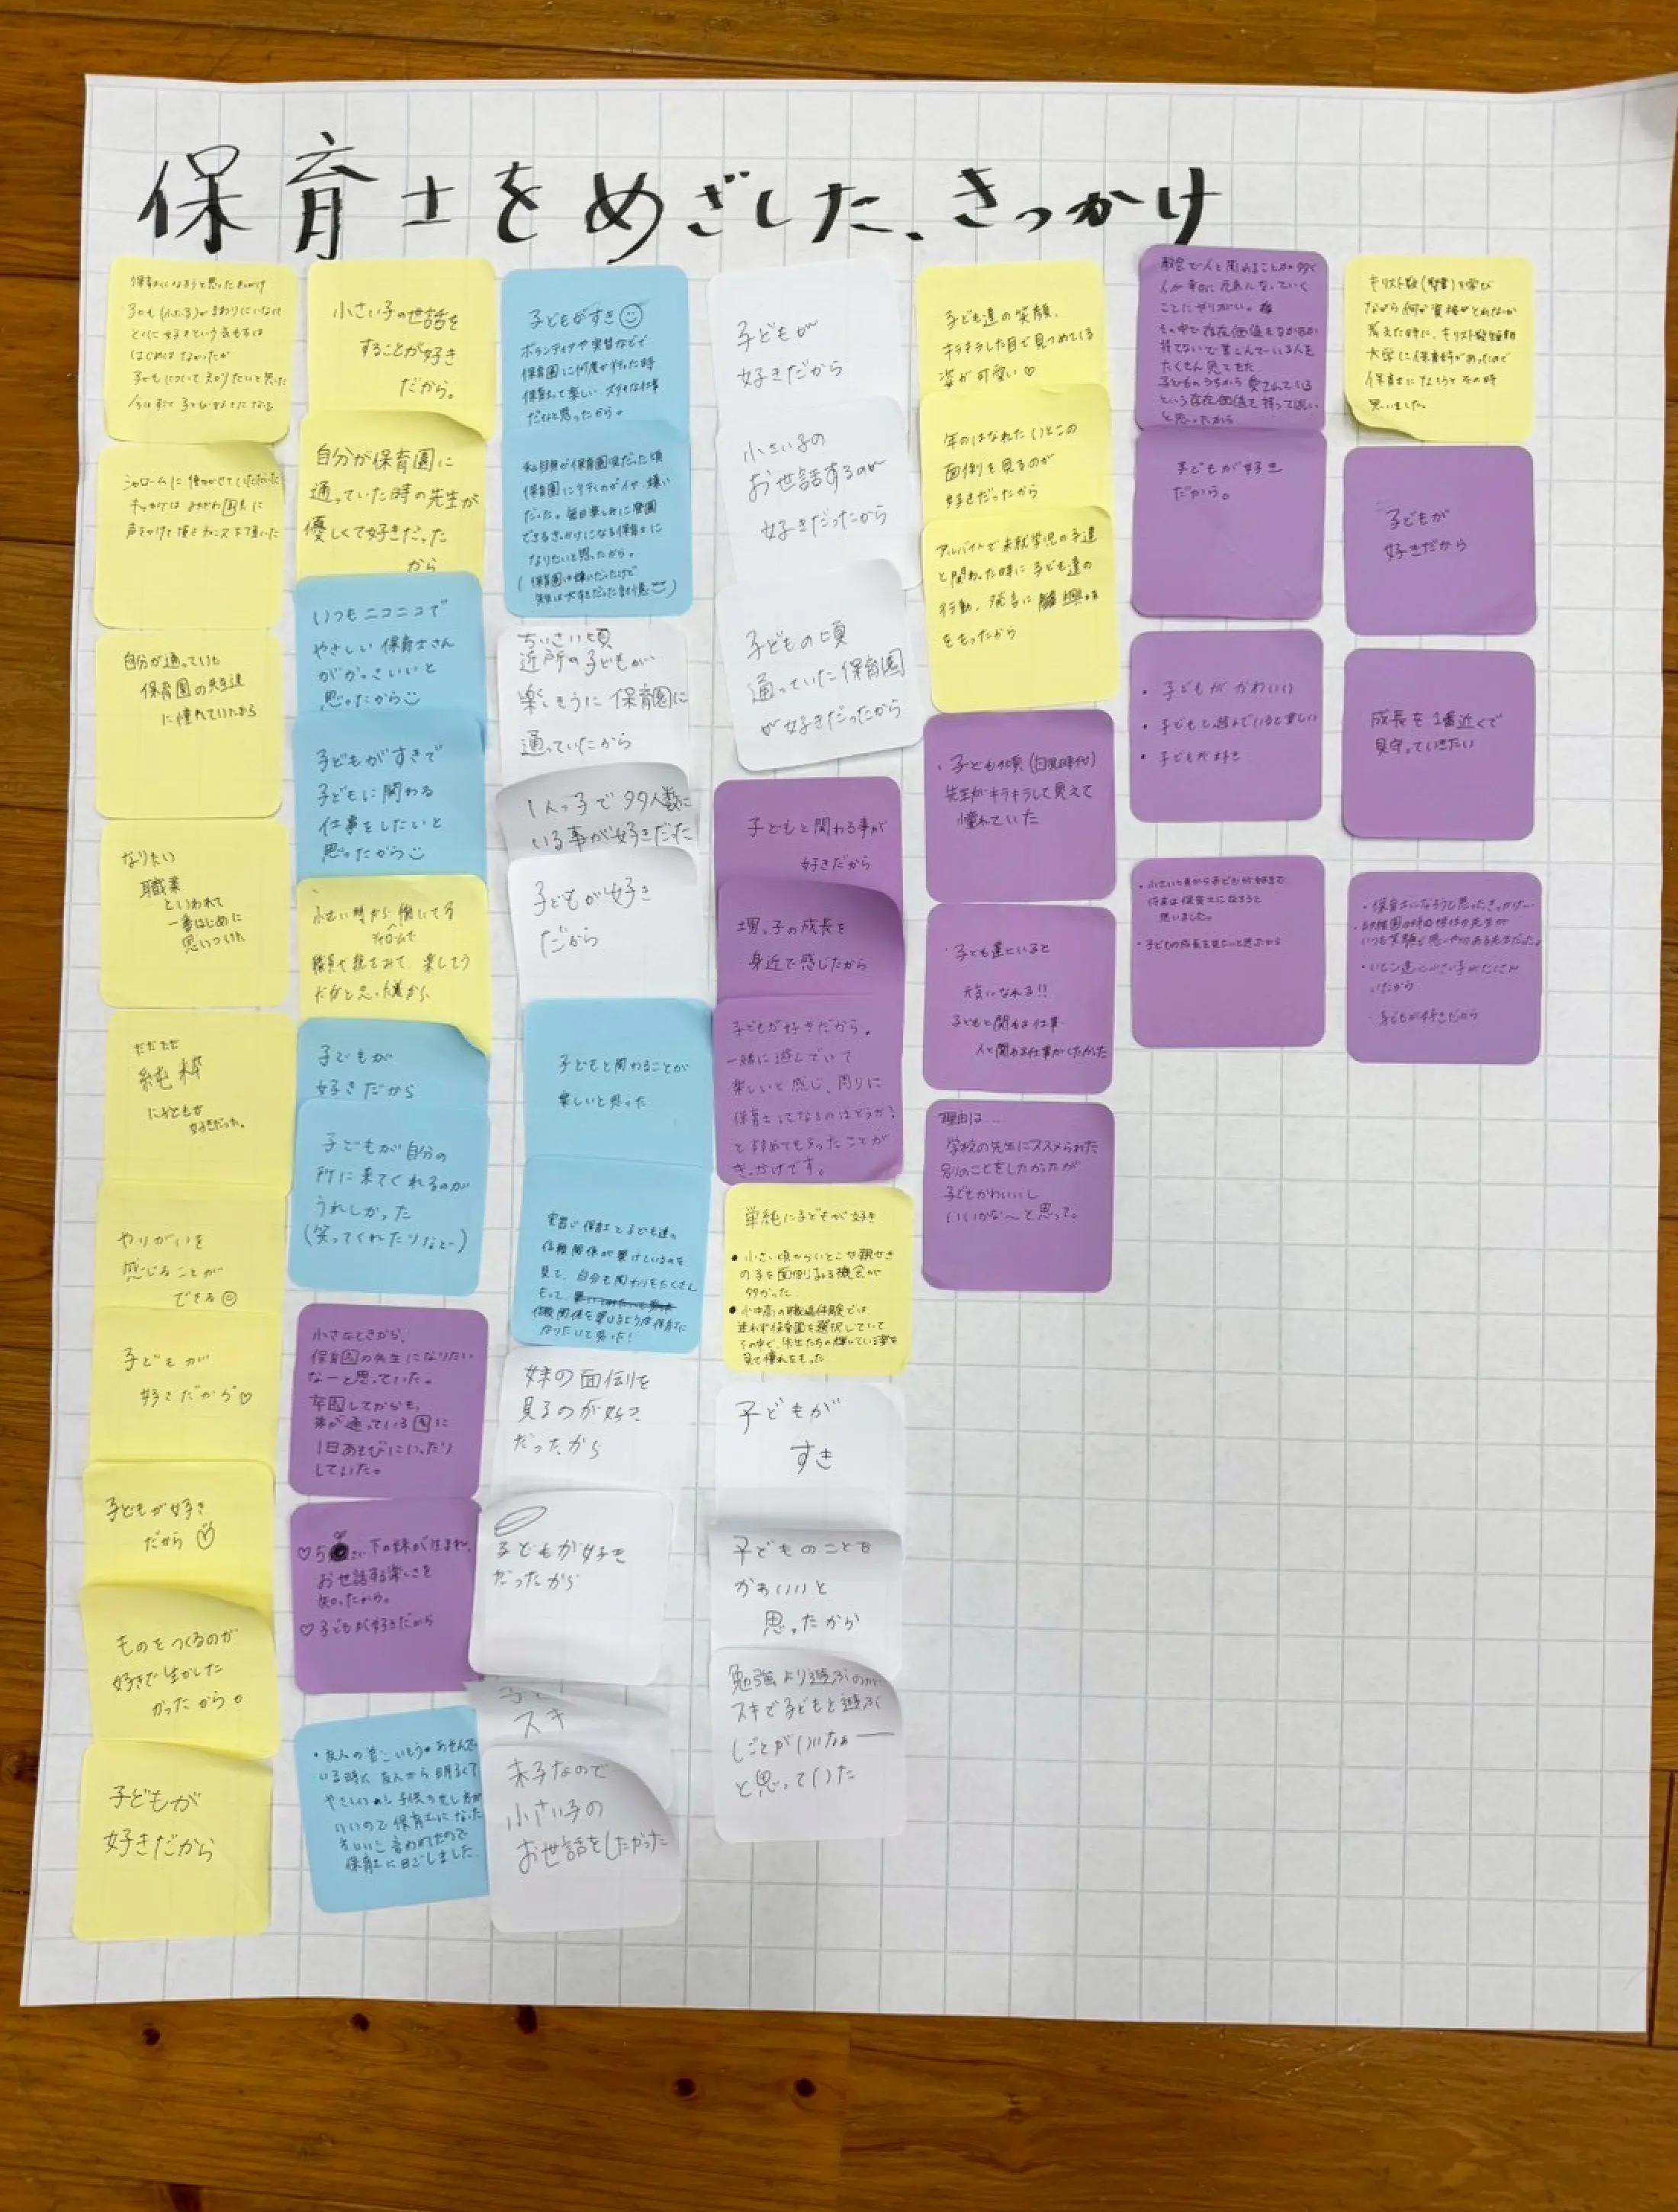 保育士をめざした、きっかけ
保育士になろうと思ったきっかけ
子ども(小さい子)がまわりにいなくて
とくに好きという気もちは
はじめはなかったが
子どもについて知りたいと思った
シャロームに働かせていただいた
きっかけは
声をかけて頂きチャンスを頂いた
自分が通っていた
保育園の先生達
に憧れていたから
なりたい
職業
といわれて
一番はじめに
思いついた
ただただ
純粋
に子どもが
好きだった。
やりがいを
感じることが
できる
子どもが
好きだから♡
子どもが好き
だから
ものをつくるのが
好きで生かした
かったから。
子どもが
好きだから
小さい子の世話を
することが好き
だから。
自分が保育園に
通っていた時の先生が
優しくて好きだった
から
いつもニコニコで
やさしい保育士さん
がかっこいいと
思ったから
子どもがすきで
子どもに関わる
仕事をしたいと
思ったから
小さい時から働いてる
シャロームで
職員を見てて、楽しそう
だなと思ったから
子どもが
好きだから
子どもが自分の
所に来てくれるのが
うれしかった
(笑ってくれたりなど)
小さなときから、
保育園の先生になりたい
なーと思っていた。
卒園してからも、
弟が通っている園に
1日あそびにいったり
していた。
♡5さい下の妹が生まれ、
お世話する楽しさを
知ったから。
♡子どもが好きだから
・友人の弟、いもうとあそんで
いる時に友人から明るくて
やさしいし子供
いいので保育士になった
方がいいと言われたので
保育士に目ざしました
子どもがすき
ボランティアや実習などで
保育園に何度か行った時
保育士って楽しい、ステキな仕事
だなと思ったから。
私自身が保育園児だった頃
保育園に行くのがイヤ、嫌い
だった。毎日楽しみに登園
できるきっかけになる保育士に
なりたいと思ったから。
(保育園は嫌いだったけど
先生は大好きだった記憶)
ちいさい頃
近所の子どもが
楽しそうに保育園に
通っていたから
1人っ子で多人数に
いる事が好きだった
子どもが好き
だから
子どもと関わることが
楽しいと思った
実習で保育士と子ども達の
信頼関係が築けているのを
見て、自分も関わりをたくさん
もって、
信頼関係を築けるような保育士に
なりたいて思った!
妹の面倒を
見るのが好き
だったから
子どもが好き
だったから
スキ
末子なので
小さい子の
お世話をしたかった
子どもが
好きだから
小さい子の
お世話するのが
好きだったから
子どもの頃
通っていた保育園
が好きだったから
子どもと関わる事が
好きだから
甥っ子の成長を
身近で感じたから
子どもが好きだから。
一緒に遊んでいて
楽しいと感じ、周りに
保育士ってなるのはどうか?
と勧めてもらったことが
きっかけです。
単純に子どもが好き
●小さい頃からいとこや親せき
の子を面倒みる機会が
多かった
●小中高の職場体験では、
迷わず保育園を選択していて
その中で、先生たちの輝いている姿を
見て憧れをもった
子どもが
すき
子どものことを
かわいいと
思ったから
勉強より遊ぶのが
スキで子どもと遊ぶ
しごとがいいなぁー
と思っていた
子ども達の笑顔、
キラキラした目で見つめてくる
姿が可愛い♡
年のはなれたいとこの
面倒を見るのが
好きだったから
アルバイトで未就学児の子達
と関わった時に子ども達の
行動、発言に興味
をもったから
・子どもの頃(園児時代)
先生がキラキラして見えて
憧れていた
・子ども達といると
元気になれる!!
子どもと関わる仕事
人と関わる仕事がしたかった
理由は…
学校の先生にススメられた
別のことをしたかったが
子どもかわいいし
いいかな〜と思って。
教会で人と関わることが多く
人が幸せに元気になっていく
ことにやりがい。
その中で存在価値をなかなか
持てないで苦しんでいる人を
たくさん見てきた
子どものうちから愛されている
という存在価値を持って欲しい
と思ったから
子どもが好き
だから。
・子どもがかわいい
・子どもと遊んでいると楽しい
・子どもが好き
・小さい頃から子どもが好きで
将来は保育士になろうと
思いました。
・子どもの成長を見たいと思ったから
キリスト教(聖書)を学び
ながら何か資格がとれないか
考えた時に、キリスト教短期
大学に保育科があったので
保育士になろうとその時
思いました。
子どもが
好きだから
成長を1番近くで
見守っていきたい
・保育士になろうと思ったきっかけ…
幼稚園の時の担任の先生が
いつも笑顔で思いやりのある先生だった。
・いとこ達に小さい子がたくさん
いたから
・子どもが好きだから